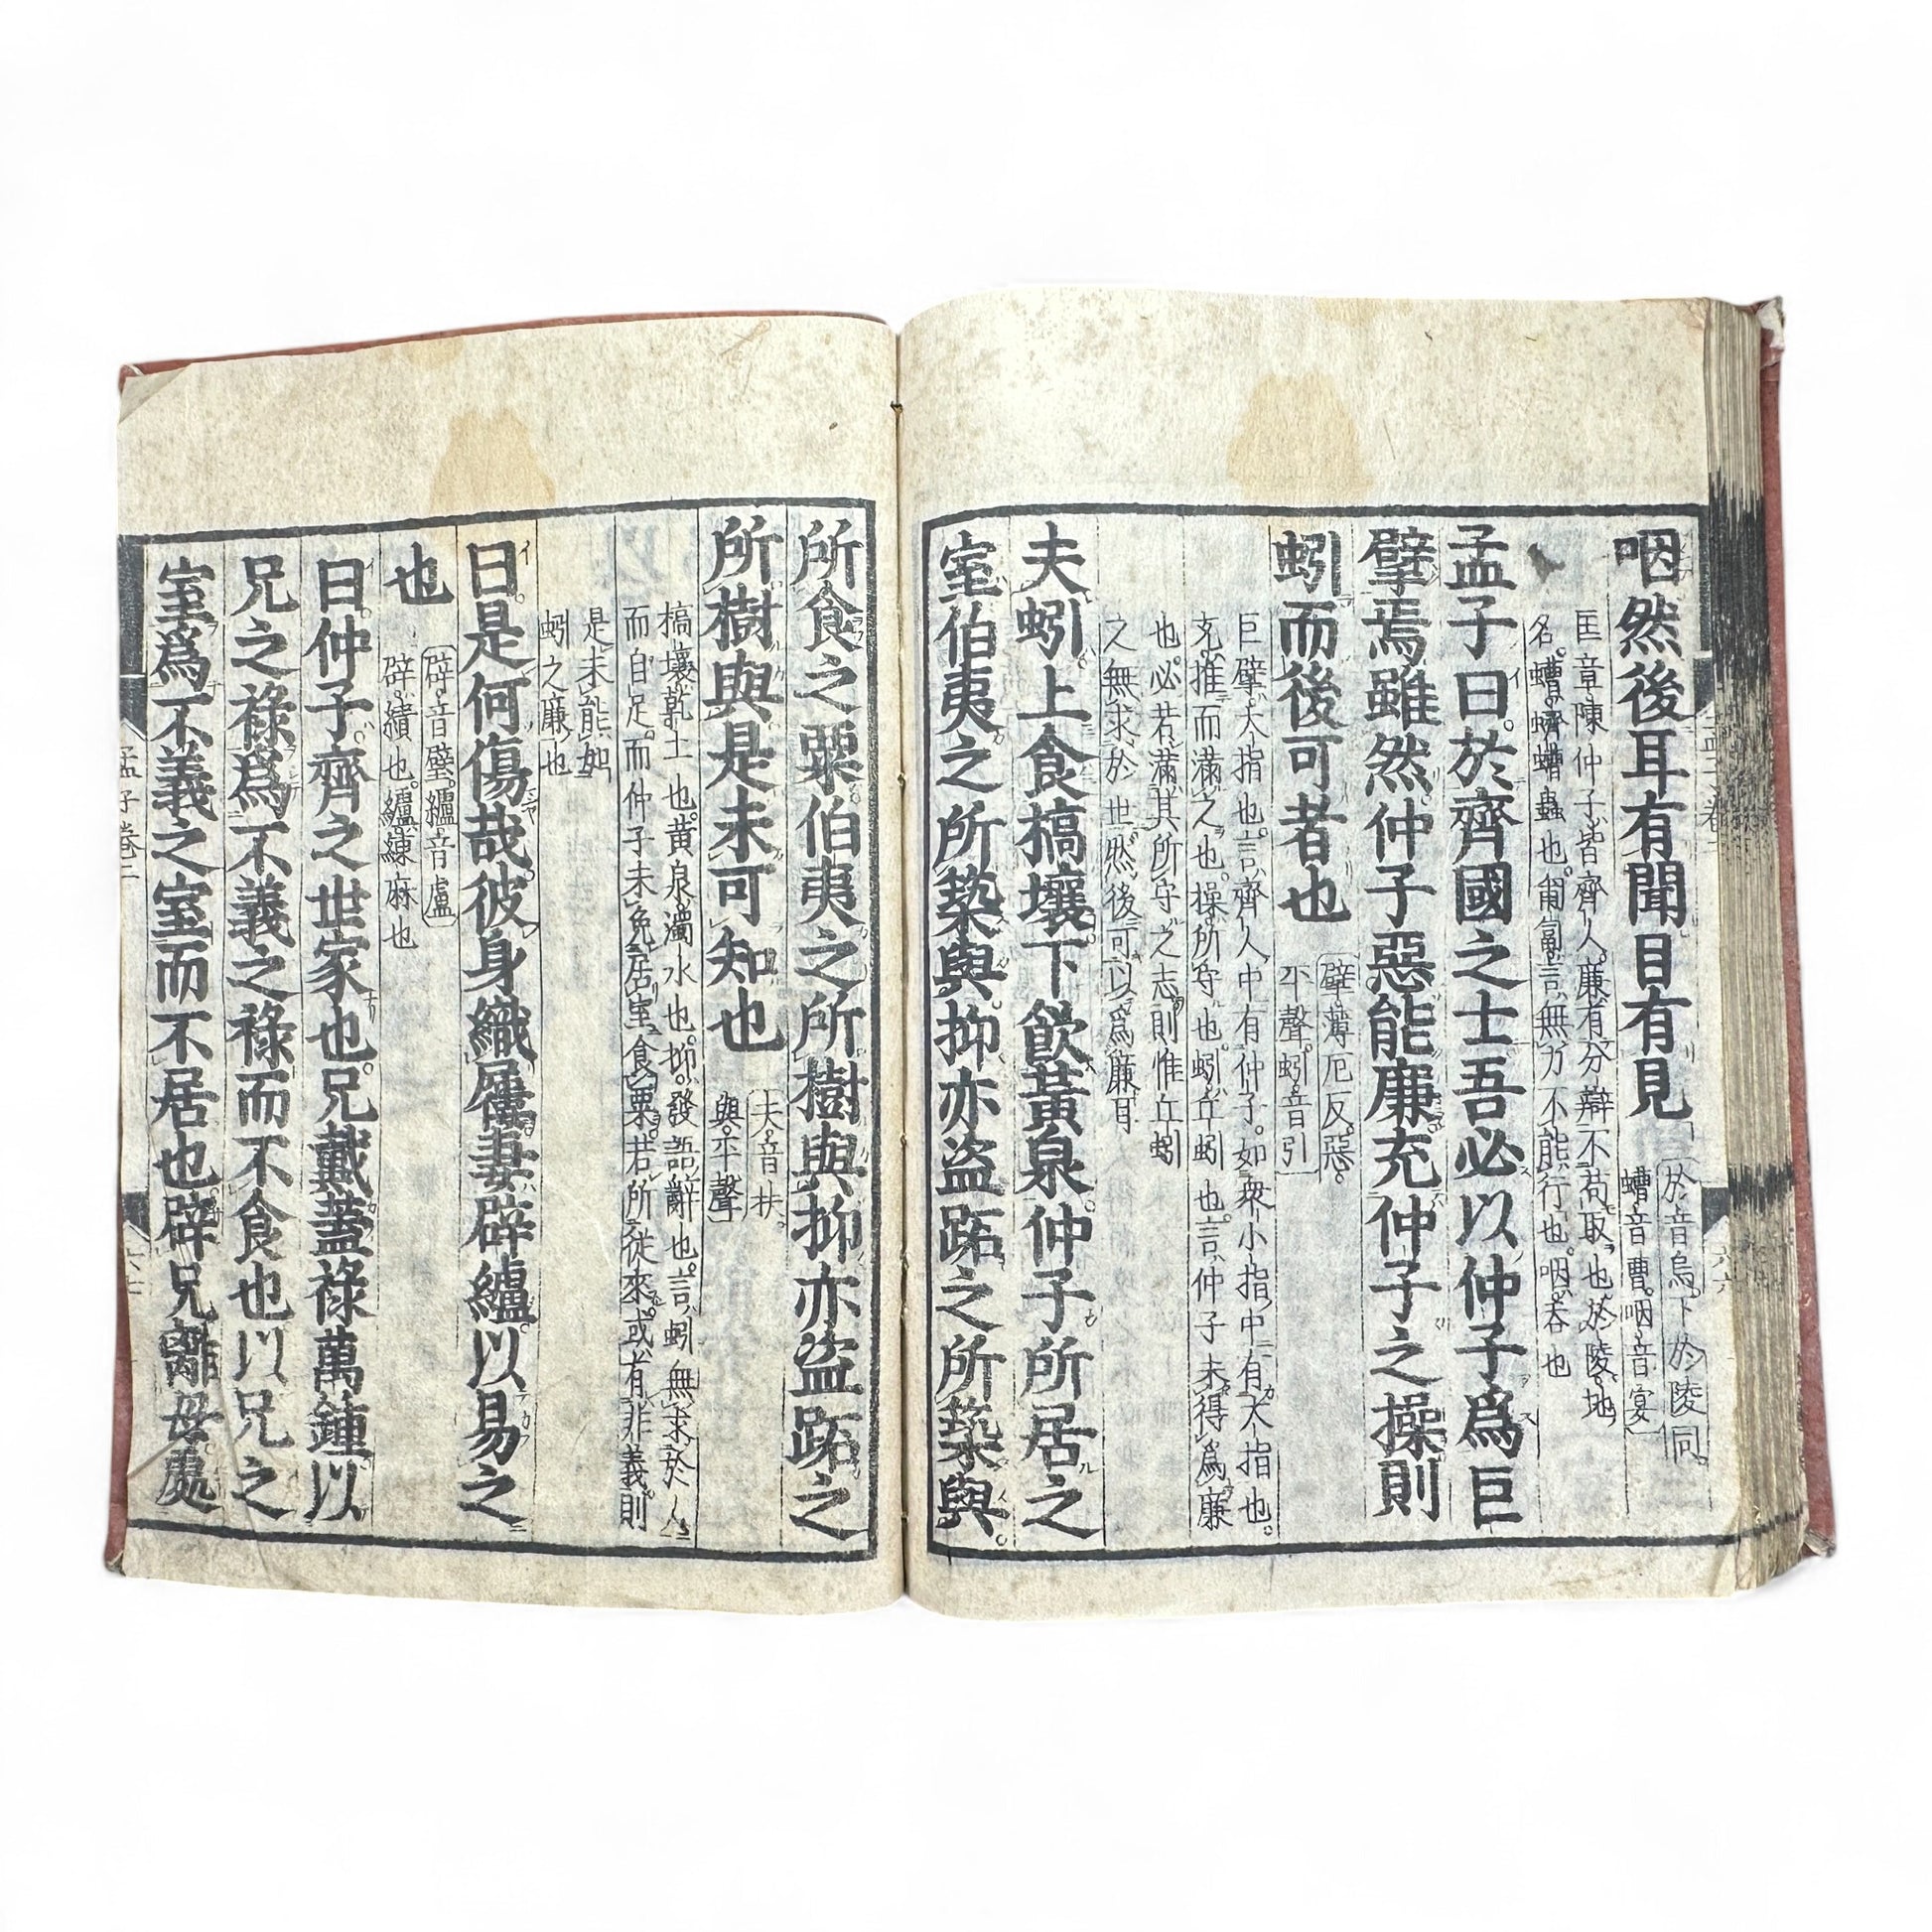 咽然後耳有聞目有見
於音烏下於陵同
螬音曹咽音宴
匡章陳仲子皆齊人廉有分辯不苟取也於陵地
名螬蠐螬蟲也匍匐言無力不能行也咽吞也
孟子曰於齊國之士吾必以仲子爲巨
擘焉雖然仲子惡能廉充仲子之操則
蚓而後可者也
擘薄厄反惡
平聲蚓音引
巨擘大指也言齊人中有仲子如衆小指中有大指也
充推而滿之也操所守也蚓丘蚓也言仲子未得爲廉
也必若滿其所守之志則惟丘蚓
之無求於世然後可以爲廉耳
夫蚓上食槁壤下飲黃泉仲子所居之
室伯夷之所築與抑亦盜跖之所築與
所食之粟伯夷之所樹與抑亦盜跖之
所樹與是未可知也
夫音扶
與平聲
槁壤乾土也黃泉濁水也抑發語辭也言蚓無求於人
而自足而仲子未免居室食粟若所從來或有非義則
是未能如
蚓之廉也
曰是何傷哉彼身織屨妻辟纑以易之
也
辟音璧纑音盧
辟績也纑練麻也
曰仲子齊之世家也兄戴蓋祿萬鍾以
兄之祿爲不義之祿而不食也以兄之
室爲不義之室而不居也辟兄離母處
孟子卷三